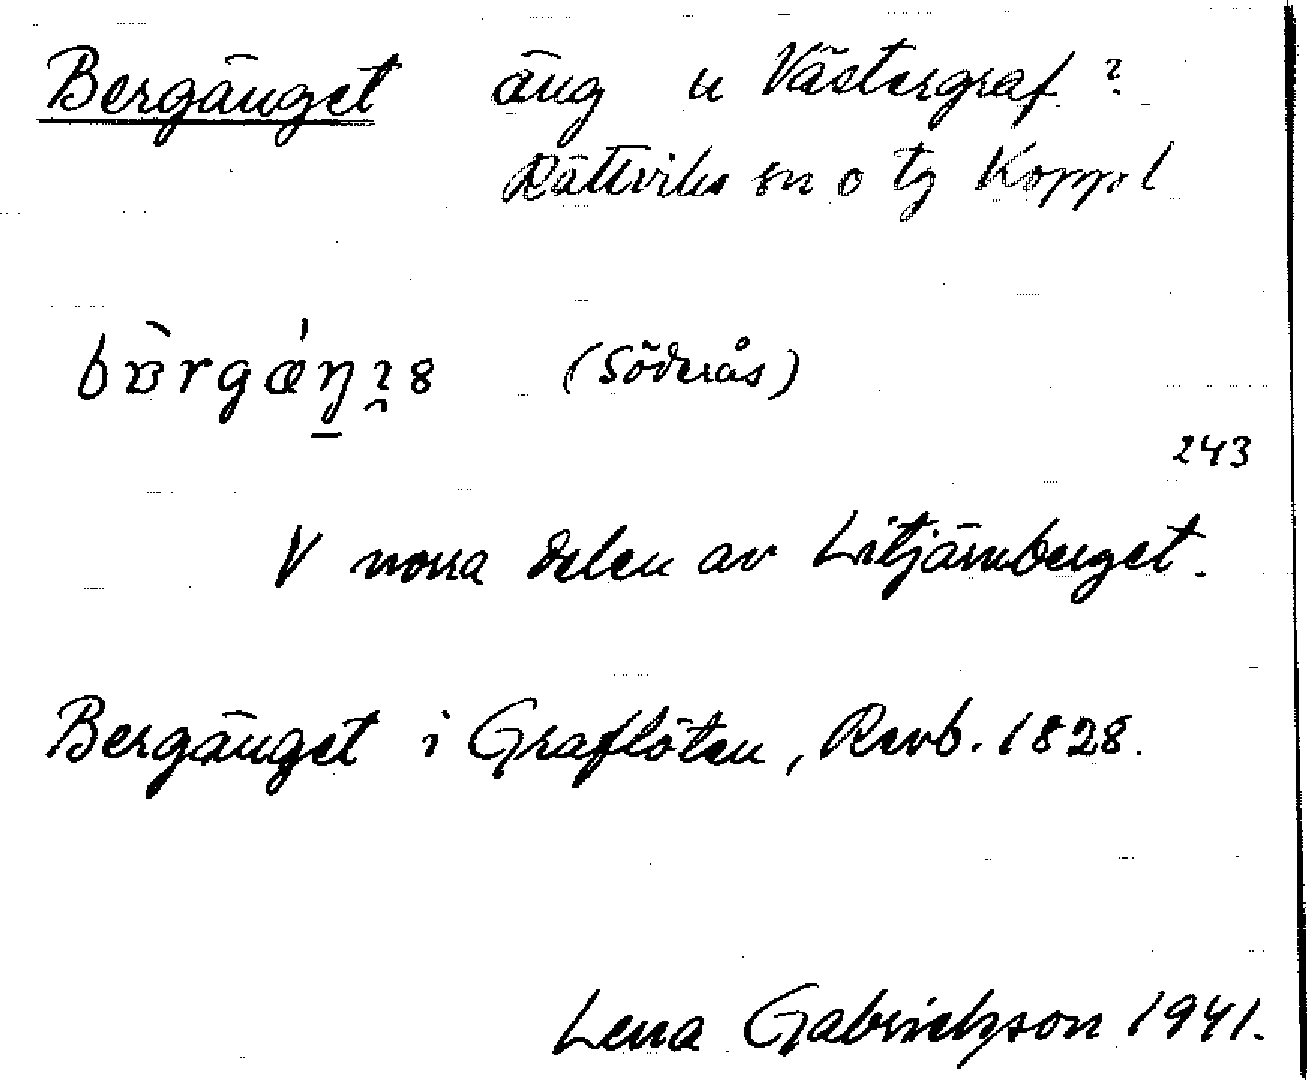 Bergänget äng u Västergraf ?
Rättviks sn o tg Koppl
(Söderås)
243
V norra delen av Litjärnberget.
Bergänget i Graflöten, Revb. 1828.
Lena Gabrielsson 1941.